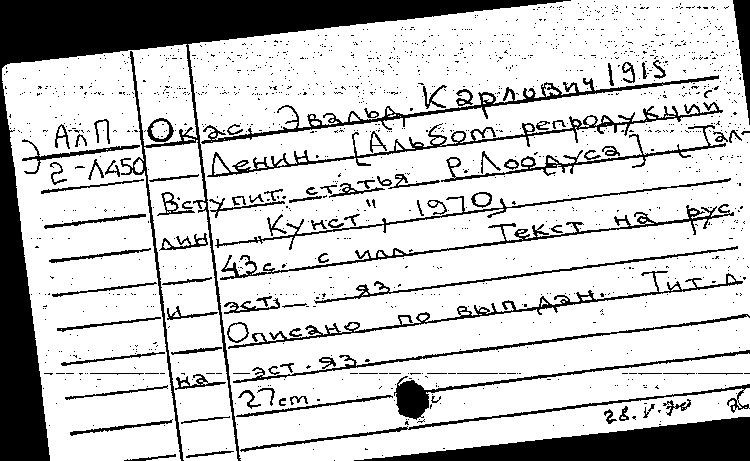 Э АлП Окас, Эвальд Карлович 1915
2-Л450 Ленин. [Альбом репродукций.
Вступит. статья Р. Лоодуса]. Тал-
лин, "Кунст", 1970,
43 с. с илл. Текст на рус.
и эст. яз.
Описано по вып. дан. Тит. л.
на эст. яз.
27 cm.
28.V.70